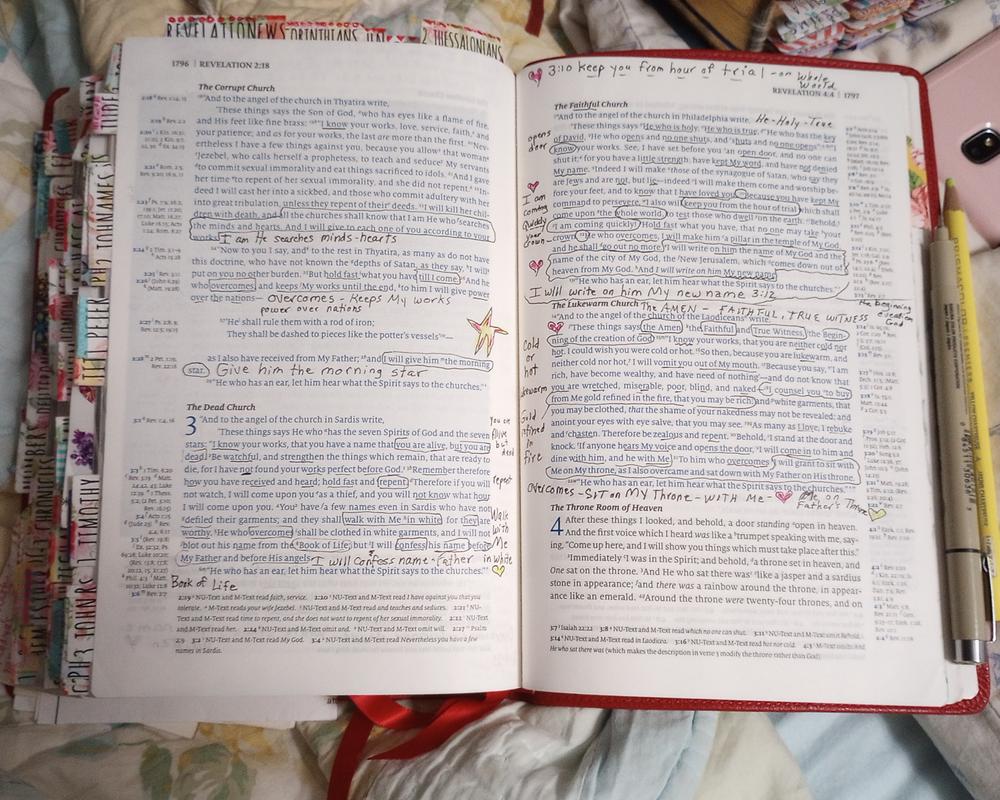 REVELATION
2 THESSALONIANS
1796 | REVELATION 2:18
The Corrupt Church
18"And to the angel of the church in Thyatira write,
'These things says the Son of God, who has eyes like a flame of fire,
and His feet like fine brass: 19"I know your works, love, service, faith, and
your patience; and as for your works, the last are more than the first. 20Nev-
ertheless I have a few things against you, because you allow that woman
Jezebel, who calls herself a prophetess, to teach and seduce My servants
to commit sexual immorality and eat things sacrificed to idols. 21And I gave
her time to repent of her sexual immorality, and she did not repent. 22In-
deed I will cast her into a sickbed, and those who commit adultery with her
into great tribulation, unless they repent of their deeds. 23I will kill her chil-
dren with death, and all the churches shall know that I am He who searches
the minds and hearts. And I will give to each one of you according to your
works.
I am He searches minds-hearts
24"Now to you I say, and to the rest in Thyatira, as many as do not have
this doctrine, who have not known the depths of Satan, as they say, I will
put on you no other burden. 25But hold fast what you have till I come. 26And he
who overcomes, and keeps My works until the end, to him I will give power
over the nations—
overcomes - Keeps My works
power over nations
27'He shall rule them with a rod of iron;
They shall be dashed to pieces like the potter's vessels'—
as I also have received from My Father; 28and I will give him the morning
star.
Give him the morning star
29"He who has an ear, let him hear what the Spirit says to the churches."'
The Dead Church
3 "And to the angel of the church in Sardis write,
'These things says He who has the seven Spirits of God and the seven
stars: "I know your works, that you have a name that you are alive, but you are
dead. 2Be watchful, and strengthen the things which remain, that are ready to
die, for I have not found your works perfect before God. 3Remember therefore
how you have received and heard; hold fast and repent. Therefore if you will
not watch, I will come upon you as a thief, and you will not know what hour
I will come upon you. 4You have a few names even in Sardis who have not
defiled their garments; and they shall walk with Me in white, for they are
worthy. 5He who overcomes shall be clothed in white garments, and I will not
blot out his name from the Book of Life; but I will confess his name before
My Father and before His angels.
I will Confess name - Father
6"He who has an ear, let him hear what the Spirit says to the churches."'
you are
alive
but
dead
repent
Walk
with
Me
in white
Book of Life
2:19 NU-Text and M-Text read faith, service. 2:20 NU-Text and M-Text read I have against you that you
tolerate. M-Text reads your wife Jezebel. NU-Text and M-Text read and teaches and seduces. 2:21 NU-
Text and M-Text read time to repent, and she does not want to repent of her sexual immorality. 2:22 NU-Text
and M-Text read her. 2:24 NU-Text and M-Text omit and. NU-Text and M-Text omit will. 2:27 Psalm
2:9 3:2 NU-Text and M-Text read My God. 3:4 NU-Text and M-Text read Nevertheless you have a few
names in Sardis.
3:10 keep you from hour of trial - on whole
world
REVELATION 4:4 | 1797
The Faithful Church
7"And to the angel of the church in Philadelphia write,
He-Holy-True
'These things says He who is holy, He who is true, "He who has the key
of David, He who opens and no one shuts, and shuts and no one opens":
8"I know your works. See, I have set before you an open door, and no one can
shut it; for you have a little strength, have kept My word, and have not denied
My name. 9Indeed I will make those of the synagogue of Satan, who say they
are Jews and are not, but lie—indeed I will make them come and worship be-
fore your feet, and to know that I have loved you. 10Because you have kept My
command to persevere, I also will keep you from the hour of trial which shall
come upon the whole world, to test those who dwell on the earth. 11Behold,
I am coming quickly! Hold fast what you have, that no one may take your
crown. 12He who overcomes, I will make him a pillar in the temple of My God,
and he shall go out no more. I will write on him the name of My God and the
name of the city of My God, the New Jerusalem, which comes down out of
heaven from My God. And I will write on him My new name.
13"He who has an ear, let him hear what the Spirit says to the churches."'
opens
door
I am
coming
Quickly
your
crown
I will write on him My new name 3:12
The Lukewarm Church
The AMEN - FAITHFUL, TRUE WITNESS
the beginning
creation
God
14"And to the angel of the church of the Laodiceans write,
'These things says the Amen, the Faithful and True Witness, the Begin-
ning of the creation of God: 15"I know your works, that you are neither cold nor
hot. I could wish you were cold or hot. 16So then, because you are lukewarm, and
neither cold nor hot, I will vomit you out of My mouth. 17Because you say, 'I am
rich, have become wealthy, and have need of nothing'—and do not know that
you are wretched, miserable, poor, blind, and naked— 18I counsel you to buy
from Me gold refined in the fire, that you may be rich; and white garments, that
you may be clothed, that the shame of your nakedness may not be revealed; and
anoint your eyes with eye salve, that you may see. 19As many as I love, I rebuke
and chasten. Therefore be zealous and repent. 20Behold, I stand at the door and
knock. If anyone hears My voice and opens the door, I will come in to him and
dine with him, and he with Me. 21To him who overcomes I will grant to sit with
Me on My throne, as I also overcame and sat down with My Father on His throne.
22"He who has an ear, let him hear what the Spirit says to the churches."'
Cold
or
hot
Gold
refined
in
fire
overcomes - Sit on My Throne - WITH Me -
Me, on
Father's Throne
The Throne Room of Heaven
4 After these things I looked, and behold, a door standing open in heaven.
And the first voice which I heard was like a trumpet speaking with me, say-
ing, "Come up here, and I will show you things which must take place after this."
2Immediately I was in the Spirit; and behold, a throne set in heaven, and
One sat on the throne. 3And He who sat there was like a jasper and a sardius
stone in appearance; and there was a rainbow around the throne, in appear-
ance like an emerald. 4Around the throne were twenty-four thrones, and on
3:7 Isaiah 22:22 3:8 NU-Text and M-Text read which no one can shut. 3:11 NU-Text and M-Text omit Behold.
3:14 NU-Text and M-Text read in Laodicea. 3:16 NU-Text and M-Text read hot nor cold. 4:3 M-Text omits And
He who sat there was (which makes the description in verse 3 modify the throne rather than God).
TIMOTHY